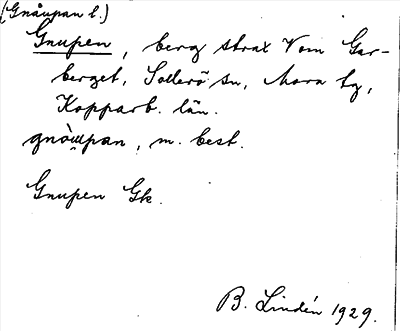 (Gnåupan l.)
Gnupen, berg strax V om Gar-
berget, Sollerö sn, Mora tg,
Kopparb. län.
gnòu̯pan, m. best.
Gnupen Gk.
B. Lindén 1929.